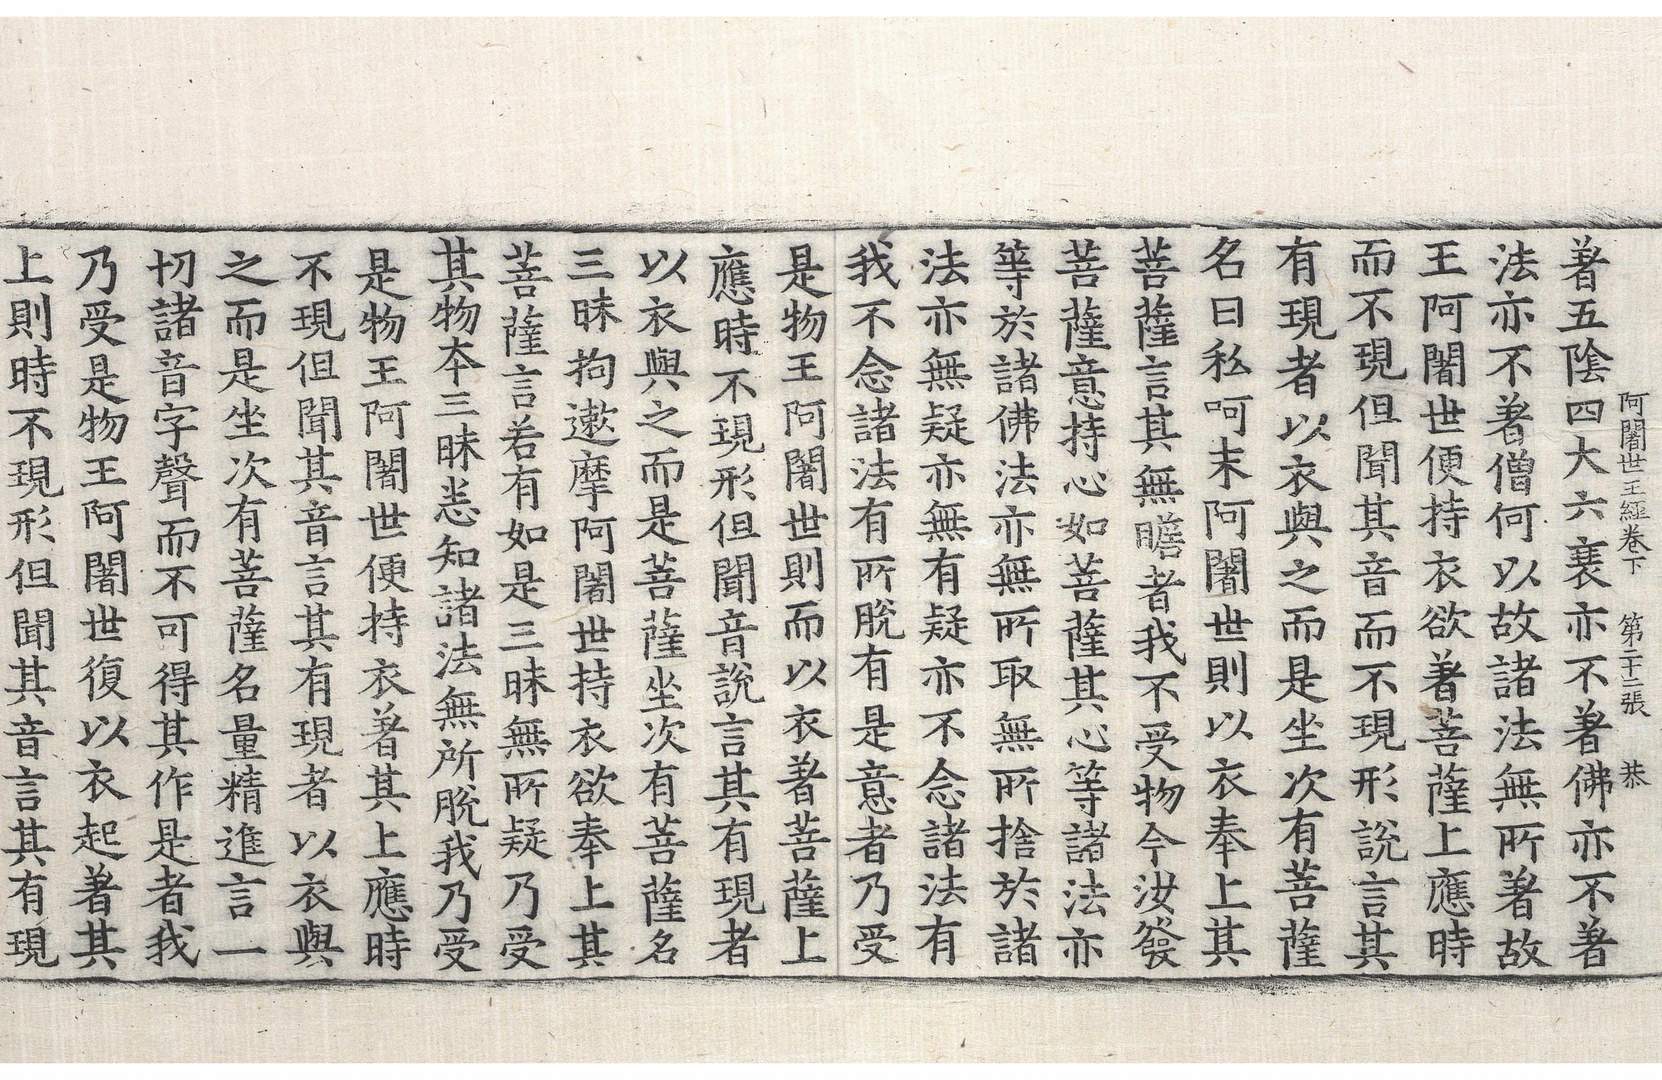 阿闍世王經卷下　第二十二張　恭
著五陰四大六衰亦不著佛亦不著
法亦不著僧何以故諸法無所著故
王阿闍世便持衣欲著菩薩上應時
而不現但聞其音而不現形說言其
有現者以衣與之而是坐次有菩薩
名曰私呵末阿闍世則以衣奉上其
菩薩言其無瞻者我不受物今汝發
菩薩意持心如菩薩其心等諸法亦
等於諸佛法亦無所取無所捨於諸
法亦無疑亦無有疑亦不念諸法有
我不念諸法有所脫有是意者乃受
是物王阿闍世則而以衣著菩薩上
應時不現形但聞音說言其有現者
以衣與之而是菩薩坐次有菩薩名
三昧拘遬摩阿闍世持衣欲奉上其
菩薩言若有如是三昧無所疑乃受
其物夲三昧恙知諸法無所脫我乃受
是物王阿闍世便持衣著其上應時
不現但聞其音言其有現者以衣與
之而是坐次有菩薩名量精進言一
切諸音字聲而不可得其作是者我
乃受是物王阿闍世復以衣起著其
上則時不現形但聞其音言其有現